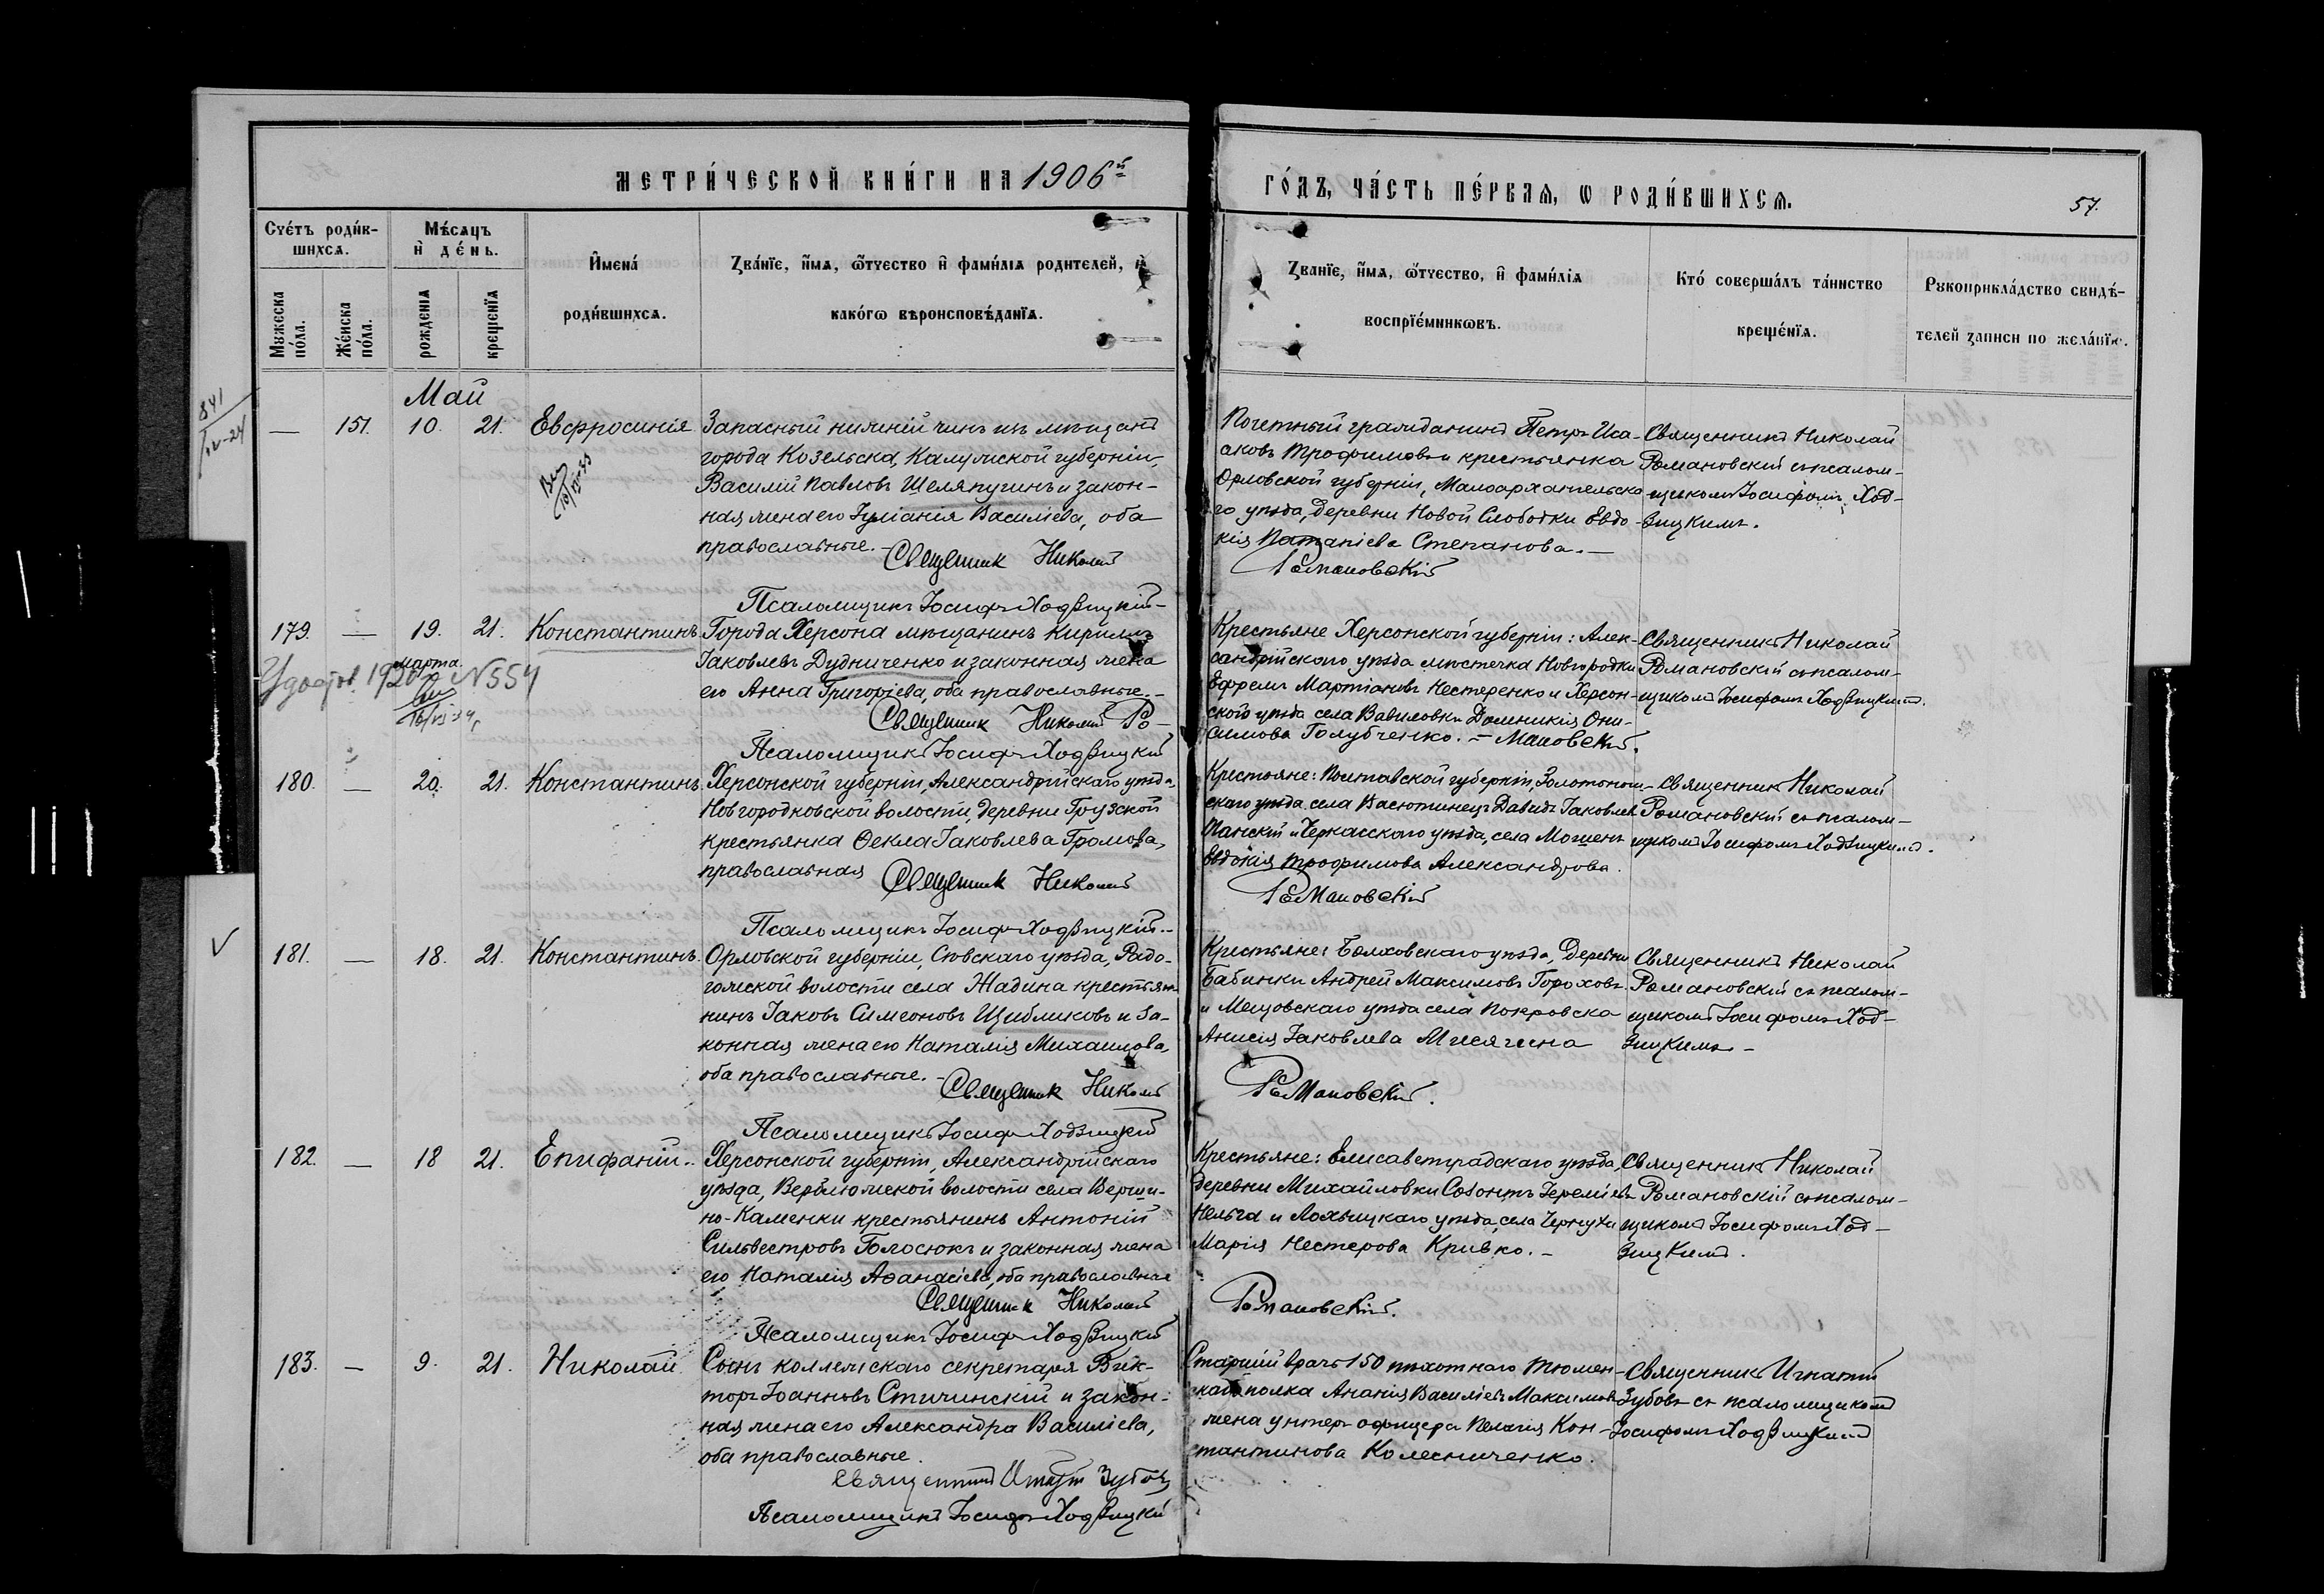 МЕТРИ́ЧЕСКОЙ КНИ́ГИ НА 1906й
ГО́ДЪ, ЧА́СТЬ ПЕ́РВАѦ, Ѡ РОДИ́ВШИХСѦ.
57.
Счéтъ роди́в-
шихсѧ.
Мѣ́сѧцъ
и҆ де́нь.
И҆мена́
роди́вшихсѧ.
Зва́нїе, и҆́мѧ, ѻ҆́тчество и҆ фами́лїѧ родителей, и҆
како́гѡ вѣроисповѣ́данїѧ.
Зва́нїе, и҆́мѧ, ѻ҆́тчество, и҆ фами́лїѧ
воспрїе́мникѡвъ.
Кто́ соверша́лъ та́инство
креще́нїѧ.
Рꙋкоприкла́дство свидѣ́-
телей записи по жела́нїю.
Мꙋжеска
по́ла.
Же́нска
по́ла.
рожденїѧ
крещенїѧ
Май
841
IV-24
— 151. 10. 21. Евфросинія
Запасный нижній чинъ изъ мѣщанъ
города Козельска, Калужской губерніи,
Василій Павловъ Шеляпугинъ и закон-
ная жена его Іуліанія Василіева, оба
православные. –
Священник Николай
Псаломщикъ Іосифъ Ходзицкій –
Почетный гражданинъ Петръ Иса-
аковъ Трофимовъ и крестьянка
Орловской губерніи, Малоархангельска-
го уѣзда, деревни Новой Слободки Евдо-
кія Потапіева Степанова. –
Романовскій
Священникъ Николай
Романовскій съ псалом-
щикомъ Іосифомъ Ход-
зицкимъ.
179. — 19. 21. Константинъ
Города Херсона мѣщанинъ Кириллъ
Іаковлевъ Дудниченко и законная жена
его Анна Григоріева, оба православные. –
Священник Николай Ро-
Псаломщикъ Іосифъ Ходзицкій
Удостов 1920 марта №554
Крестьяне Херсонской губерніи: Алек-
сандрійскаго уѣзда мѣстечка Новгородки
Ефремъ Мартіановъ Нестеренко и Херсон-
скаго уѣзда села Вавиловки Домникія Они-
симова Голубченко. – мановскій.
Священникъ Николай
Романовскій съ псалом-
щикомъ Іосифомъ Ходзицкимъ.
180. — 20. 21. Константинъ
Херсонской губерніи, Александрійскаго уѣзда,
Новгородковской волости, деревни Грузской
крестьянка Ѳекла Іаковлева Громова,
православная
Священник Николай
Псаломщикъ Іосифъ Ходзицкій. –
Крестьяне: Полтавской губерніи, Золотонош-
скаго уѣзда села Васютинецъ Давидъ Іаковлев
Панскій и Черкасскаго уѣзда, села Мошенъ
Евдокія Трофимова Александрова.
Романовскій
Священник Николай
Романовскій съ псалом-
щикомъ Іосифомъ Ходзицкимъ.
V
181. — 18. 21. Константинъ
Орловской губерніи, Сѣвскаго уѣзда, Радо-
гожской волости села Жадина крестьян-
нинъ Іаковъ Симеоновъ Щибликовъ и за-
конная жена его Наталія Михаилова,
оба православные. –
Священник Николай
Псаломщикъ Іосифъ Ходзицкій
Крестьяне: Болховскаго уѣзда, Деревни
Бабинки Андрей Максимовъ Гороховъ
и Мещовскаго уѣзда села Покровска
Анисія Іаковлева
Романовскій.
Священникъ Николай
Романовскій съ псалом-
щикомъ Іосифомъ Ход-
зицкимъ –
182. — 18 21. Епифаній.
Херсонской губерніи, Александрійскаго
уѣзда, Верблюжской волости села Верши-
но-Каменки крестьянинъ Антоній
Сильвестровъ Голосюкъ и законная жена
его Наталія Аѳанасіева, оба православные
Священник Николай
Псаломщикъ Іосифъ Ходзицкій
Крестьяне: Елисаветградскаго уѣзда,
деревни Михайловки Созонтъ Іереміевъ
Нельга и Лохвицкаго уѣзда, села Чернухи
Марія Нестерова Кривко. –
Романовскій.
Священникъ Николай
Романовскій съ псалом-
щикомъ Іосифомъ Ход-
зицкимъ.
183. — 9. 21. Николай
Сынъ коллежскаго секретаря Вик-
торъ Іоанновъ Стичинскій и закон-
ная жена его Александра Василіева,
оба православные.
Священникъ Игнатій Зубовъ
Псаломщикъ Іосифъ Ходзицкій
Старшій врачъ 150 пѣхотнаго Тюмен-
скаго полка Ананія Василіевъ Максимовъ
жена унтеръ офицера Пелагія Кон-
стантинова Колесниченко.
Священникъ Игнатій
Зубовъ съ псаломщикомъ
Іосифомъ Ходзицкимъ